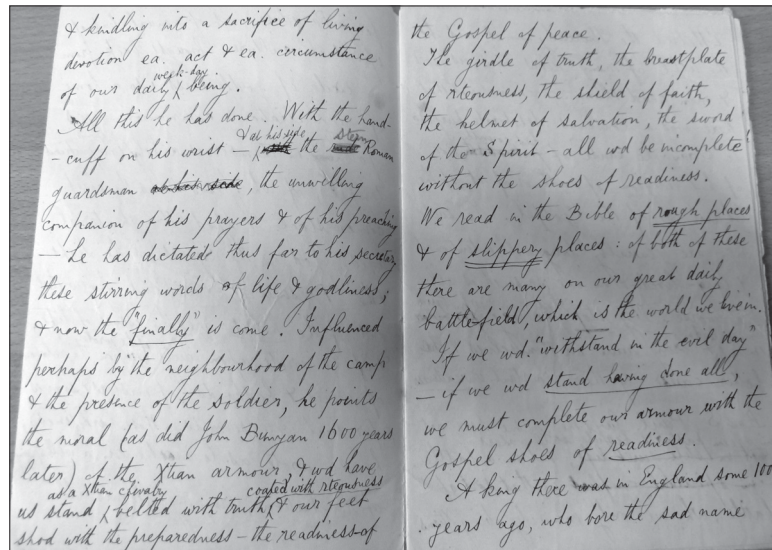 & kindling into a sacrifice of living
devotion ea. act & ea. circumstance
week-day
of our daily ^ being.
All this he has done. With the hand-
& at his side stern
-cuff on his wrist - ^ the Roman
guardsman at his side, the unwilling
companion of his prayers & of his preaching
- he has dictated thus far to his secretary
these stirring words of life & godliness;
& now the "finally" is come. Influenced
perhaps by the neighbourhood of the camp
& the presence of the soldier, he points
the moral (as did John Bunyan 1600 years
later) of the Xtian armour, & wd have
as a Xtian chivalry coated with rteousness
us stand ^ belted with truth, ^ & our feet
shod with the preparedness - the readiness of
the Gospel of peace.
The girdle of truth, the breastplate
of rteousness, the shield of faith,
the helmet of salvation, the sword
of the Spirit - all wd be incomplete
without the shoes of readiness.
We read in the Bible of rough places
& of slippery places: of both of these
there are many on our great daily
battlefield, which is the world we live in.
If we wd. "withstand in the evil day"
- if we wd stand having done all,
we must complete our armour with the
Gospel shoes of readiness.
A king there was in England some 100
years ago, who bore the sad name